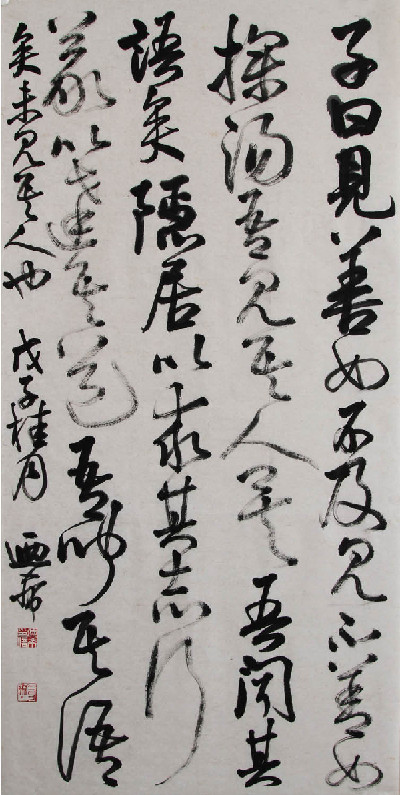 子曰見善如不及見不善如
探湯吾見其人矣吾聞其
語矣隱居以求其志行
義以達其道吾聞其語
矣未見其人也戊子桂月